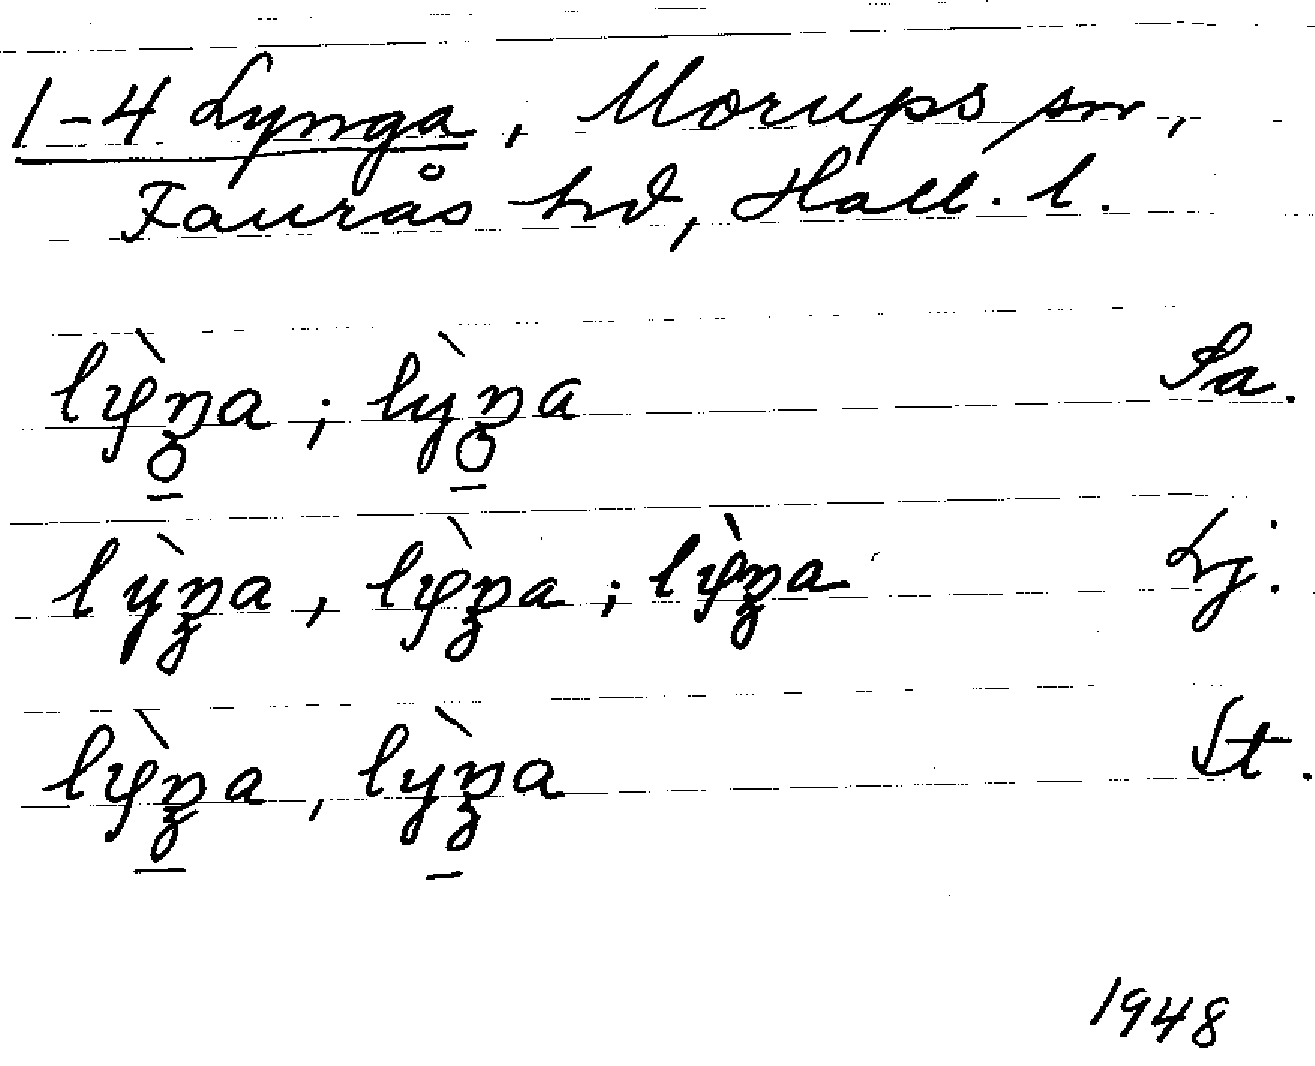 1-4 Lynga, Morups sn,
Faurås hd, Hall. l.
lỳŋa ; lỳŋa Sa.
lỳŋa , lỳŋa ; lỳŋa Lj.
lỳŋa , lỳŋa St.
1948